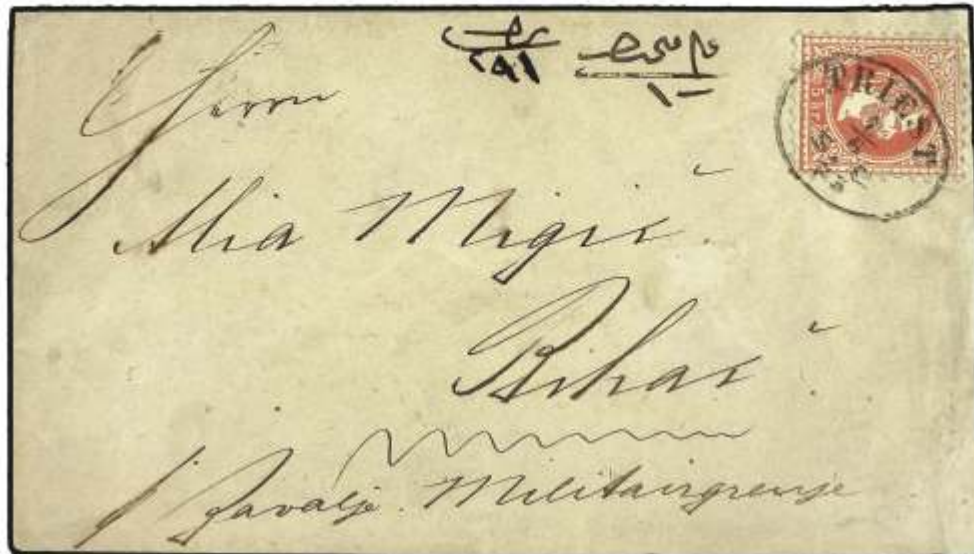 ٢٩١
١٠
5 kr
TRIEST
Herrn
Mia Migić.
Bihać.
p/ Zavalje. Militairgrenze